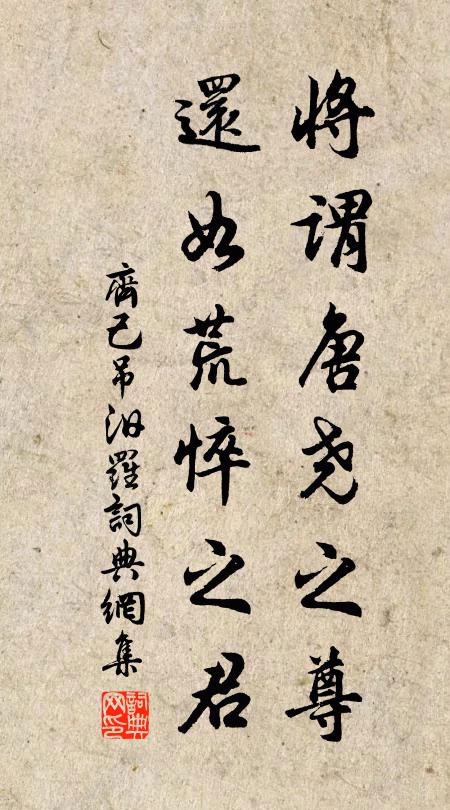 將謂唐堯之尊
還如荒悴之君
齊己吊汨羅詞典網集
詞典
网印